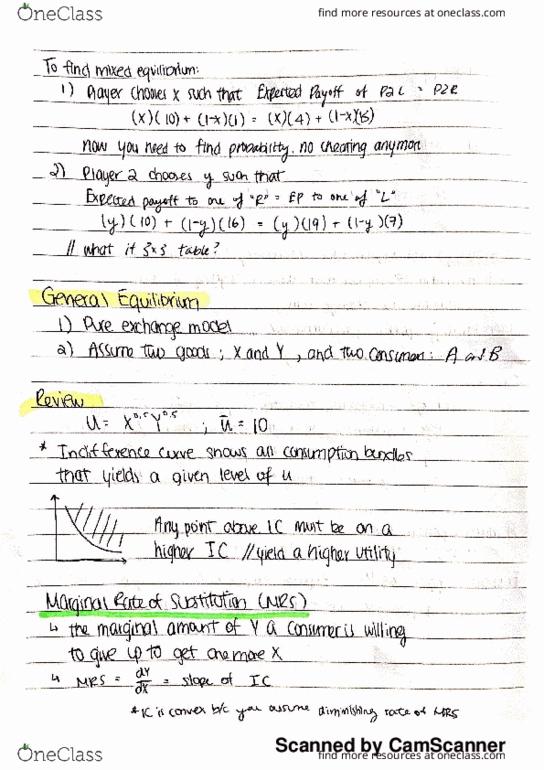 OneClass
find more resources at oneclass.com
To find mixed equilibrium:
1) Player chooses x such that Expected Payoff of P2L = P2R
(x)(10) + (1-x)(1) = (x)(4) + (1-x)(15)
Now you need to find probability. no cheating anymore
2) Player 2 chooses y such that
Expected payoff to one of "R" = EP to one of "L"
(y)(10) + (1-y)(16) = (y)(19) + (1-y)(7)
// what if 3x3 table?
General Equilibrium
1) Pure exchange model
2) Assume two goods; X and Y, and two consumers: A and B
Review
U = X^0.5 Y^0.5 ; ū = 10
* Indifference curve shows all consumption bundles
that yields a given level of u
Any point above IC must be on a
higher IC // yield a higher utility
Marginal Rate of Substitution (MRS)
↳ the marginal amount of Y a consumer is willing
to give up to get one more X
↳ MRS = dY/dX = slope of IC
* IC is convex b/c you assume diminishing rate of MRS
OneClass
Scanned by CamScanner
find more resources at oneclass.com